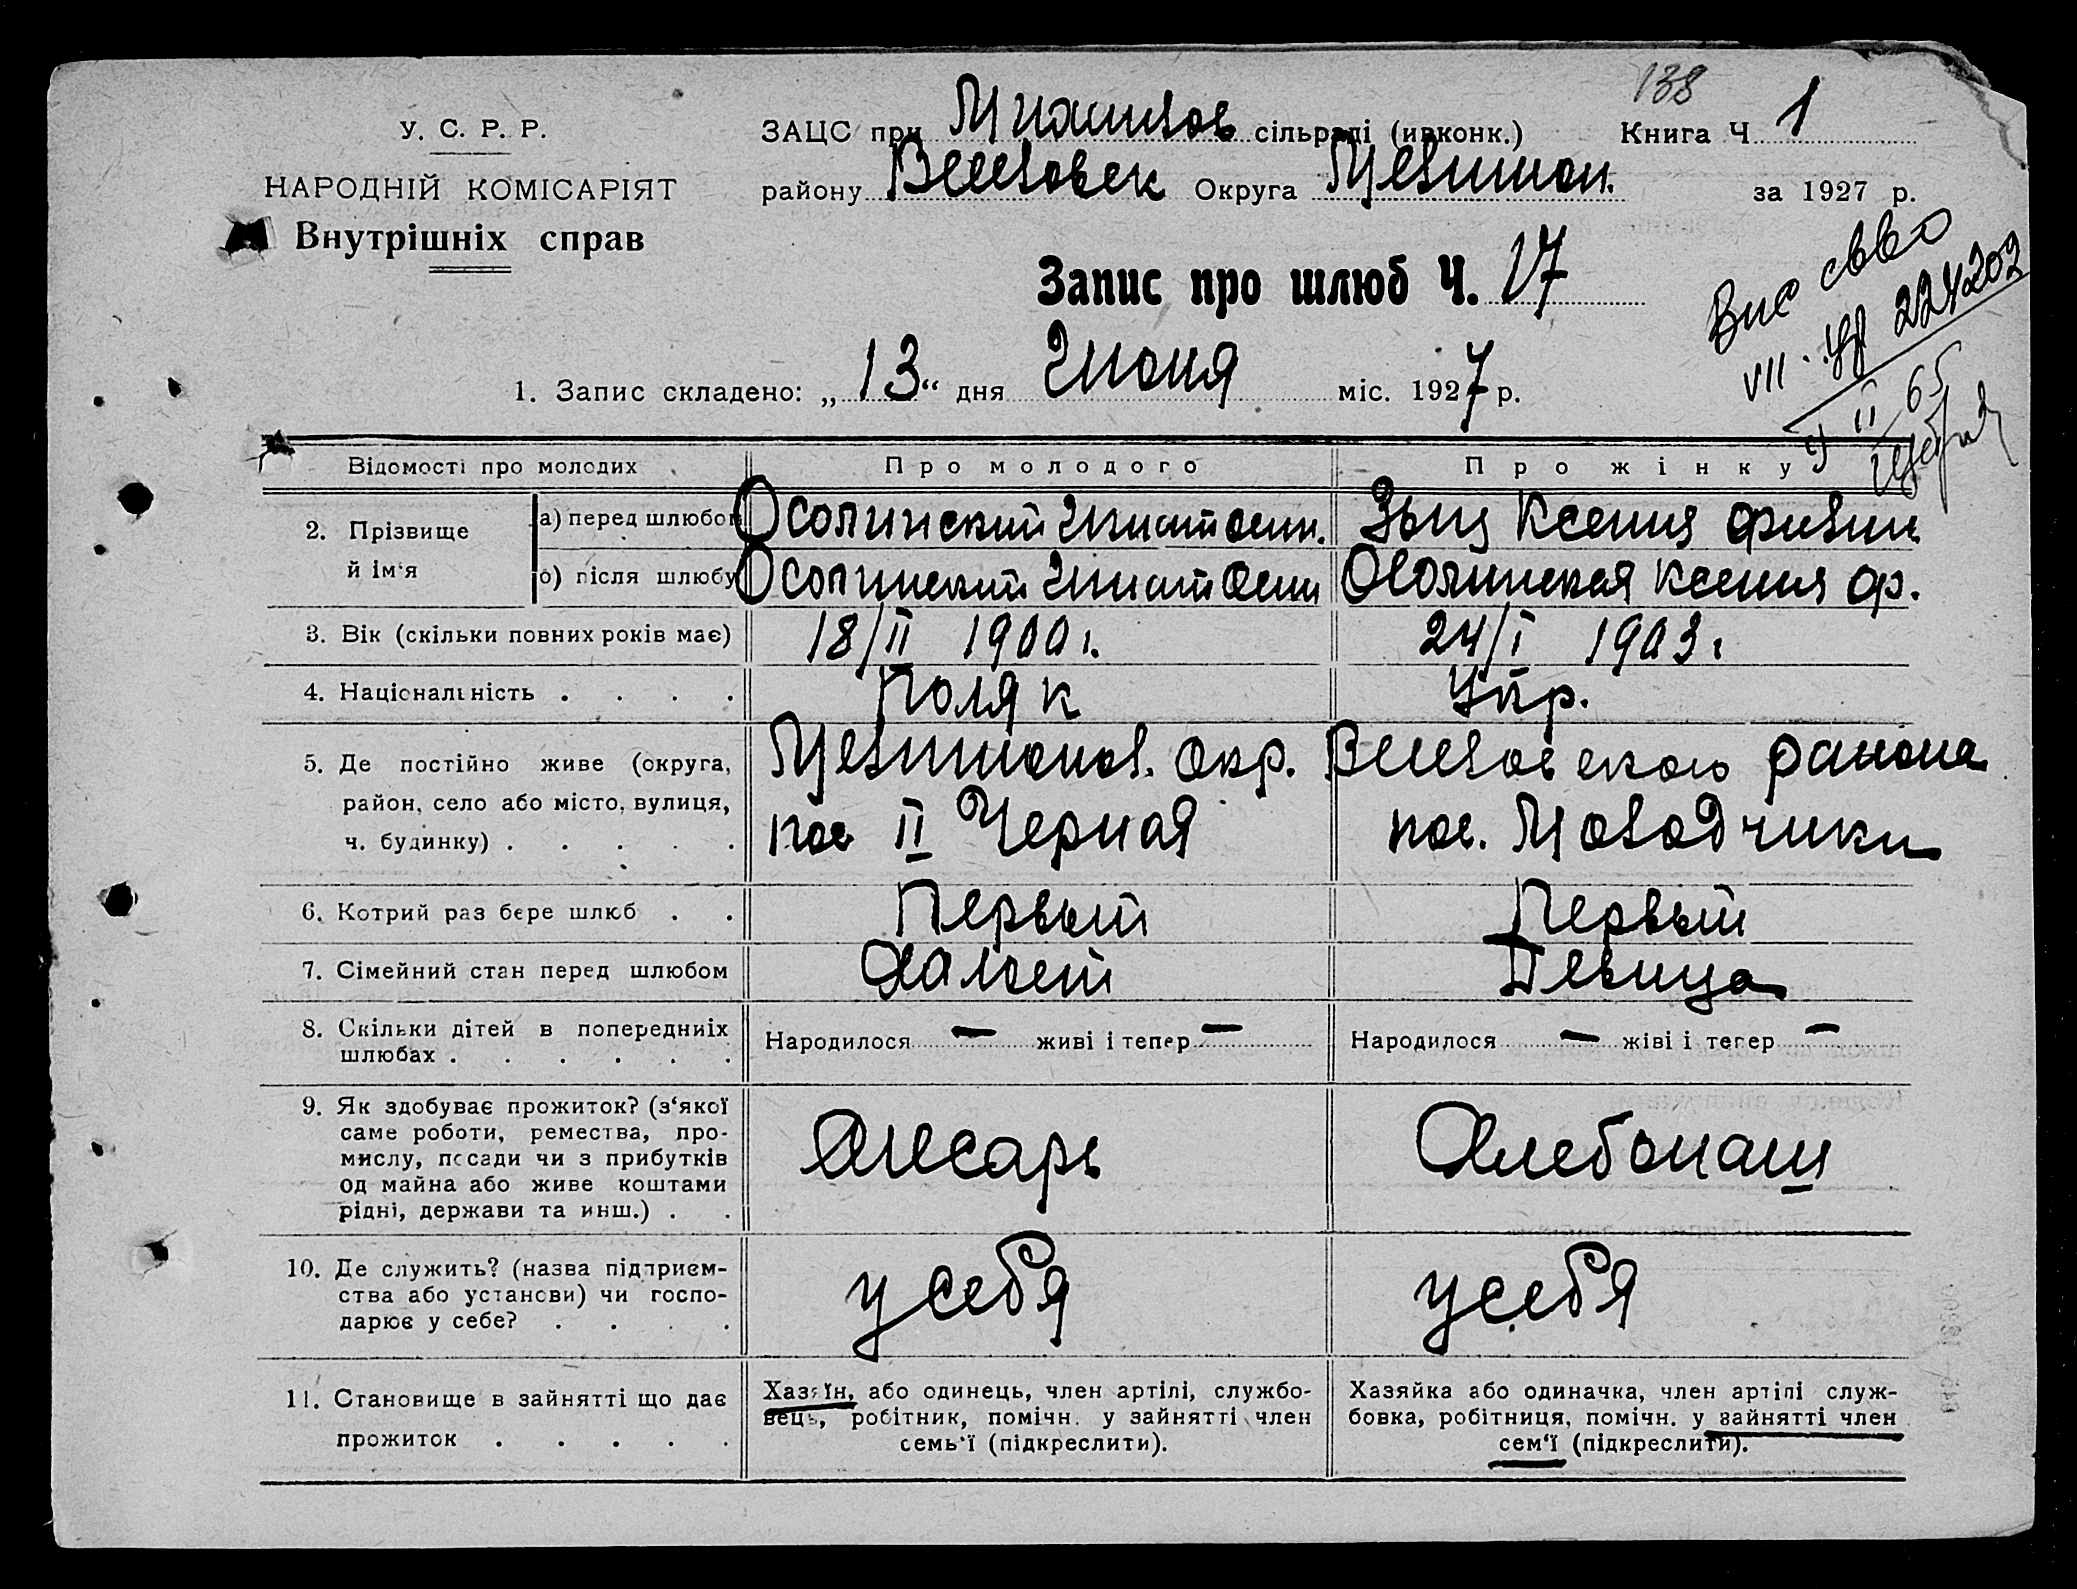 138
У. С. Р. Р.
НАРОДНІЙ КОМІСАРІЯТ
Внутрішніх справ
ЗАЦС при сільраді (ивконк.) Книга Ч 1
району Округа за 1927 р.
Запис про шлюб Ч. 17
1. Запис складено: „13“ дня Июня міс. 1927 р.
VII
II 65
Відомості про молодих Про молодого Про жінку
2. Прізвище й ім'я
а) перед шлюбом Осолинский Игнат Зыл Ксения
б) після шлюбу Осолинский Игнат Осолинская Ксения Ф.
3. Вік (скільки повних років має) 18/II 1900 г. 24/I 1903 г
4. Національність . . . . Поляк Укр.
5. Де постійно живе (округа, окр. района
район, село або місто, вулиця, пос II Черная пос. Молодчики
ч. будинку) . . . . .
6. Котрий раз бере шлюб . . Первый Первый
7. Сімейний стан перед шлюбом Холост Девица
8. Скільки дітей в попередниіх Народилося — живі і тепер — Народилося — жіві і тепер —
шлюбах . . . . . .
9. Як здобуває прожиток? (з'якої
саме роботи, ремества, про-
мислу, посади чи з прибутків Слесарь Хлебопаш
од майна або живе коштами
рідні, держави та инш.) . .
10. Де служить? (назва підприєм-
ства або установи) чи госпо- у себя у себя
дарює у себе? . . . .
11. Становище в зайнятті що дає Хазяїн, або одинець, член артілі, службо- Хазяйка або одиначка, член артілі служ-
прожиток . . . . . вець, робітник, помічн. у зайнятті член бовка, робітниця, помічн. у зайнятті член
семь'ї (підкреслити). сем'ї (підкреслити).